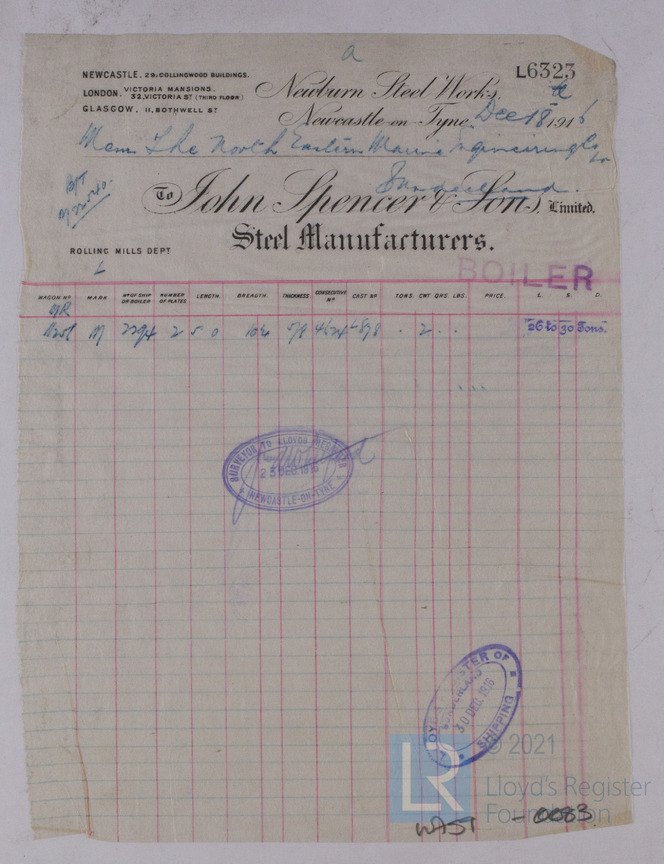 a
NEWCASTLE. 29, COLLINGWOOD BUILDINGS.
LONDON. VICTORIA MANSIONS. 32, VICTORIA ST (THIRD FLOOR)
GLASGOW, 11, BOTHWELL ST
L6323
a
Newburn Steel Works,
Newcastle-on-Tyne, Dec 18 1916
The North Eastern Marine Engineering Co
Sunderland.
To John Spencer & Sons, Limited.
Steel Manufacturers.
ROLLING MILLS DEPT
L
BOILER
WAGON No MARK No OF SHIP OR BOILER NUMBER OF PLATES LENGTH. BREADTH. THICKNESS. CONSECUTIVE No CAST No TONS. CWT. QRS. LBS. PRICE. L. S. D.
M 2294 2 5 0 5/8 2 26 to 30 Tons.
SURVEYOR TO LLOYDS REGISTER
23 DEC. 1916
NEWCASTLE-ON-TYNE
LLOYD'S REGISTER OF SHIPPING
SUNDERLAND
30 DEC. 1916
LR
© 2021
Lloyd's Register
Foundation
W451 - 0083